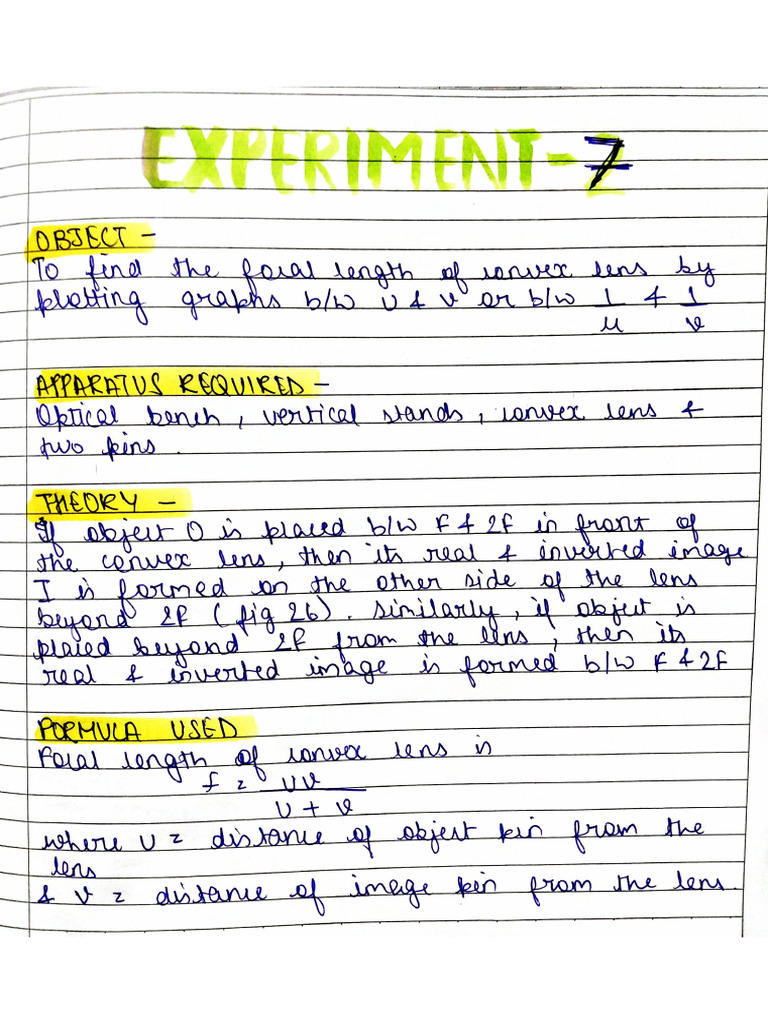 EXPERIMENT-7
OBJECT -
To find the focal length of convex lens by
plotting graphs b/w u & v or b/w 1/u & 1/v
APPARATUS REQUIRED -
Optical bench, vertical stands, convex lens &
two pins.
THEORY -
If object O is placed b/w F & 2F in front of
the convex lens, then its real & inverted image
I is formed on the other side of the lens
beyond 2F (fig 26). Similarly, if object is
placed beyond 2F from the lens, then its
real & inverted image is formed b/w F & 2F
FORMULA USED
Focal length of convex lens is
f = uv
u + v
where u = distance of object pin from the
lens
& v = distance of image pin from the lens.